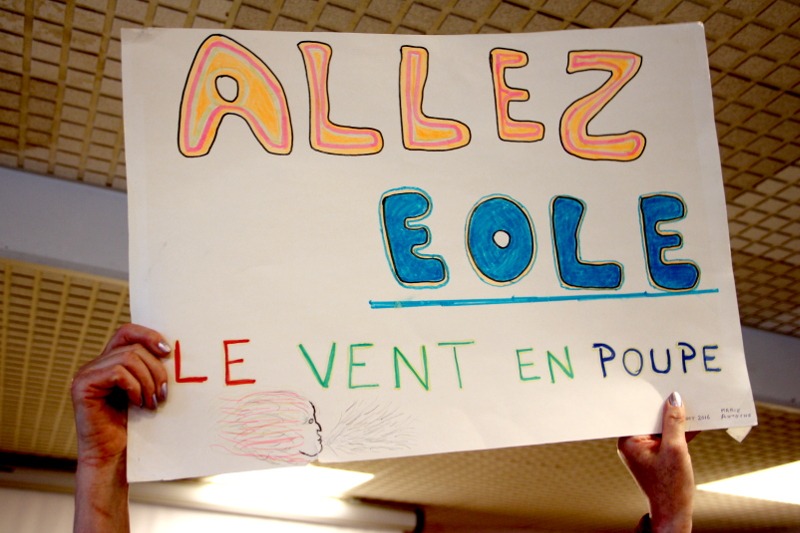 ALLEZ
EOLE
LE VENT EN POUPE
MARIE